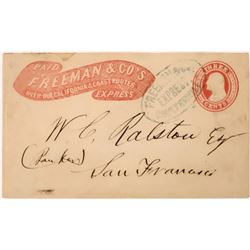 PAID
FREEMAN & CO'S
OVER OUR CALIFORNIA & COAST ROUTES
EXPRESS
FREEMAN & CO'S
EXPRESS
THREE
CENTS
W. C. Ralston Esq
(Banker)
San Francisco